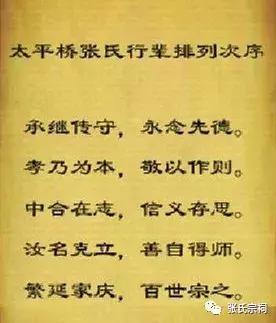 太平桥张氏行辈排列次序
承继传守，永念先德。
孝乃为本，敬以作则。
中合在志，信义存思。
汝名克立，善自得师。
繁延家庆，百世宗之。
张氏宗祠